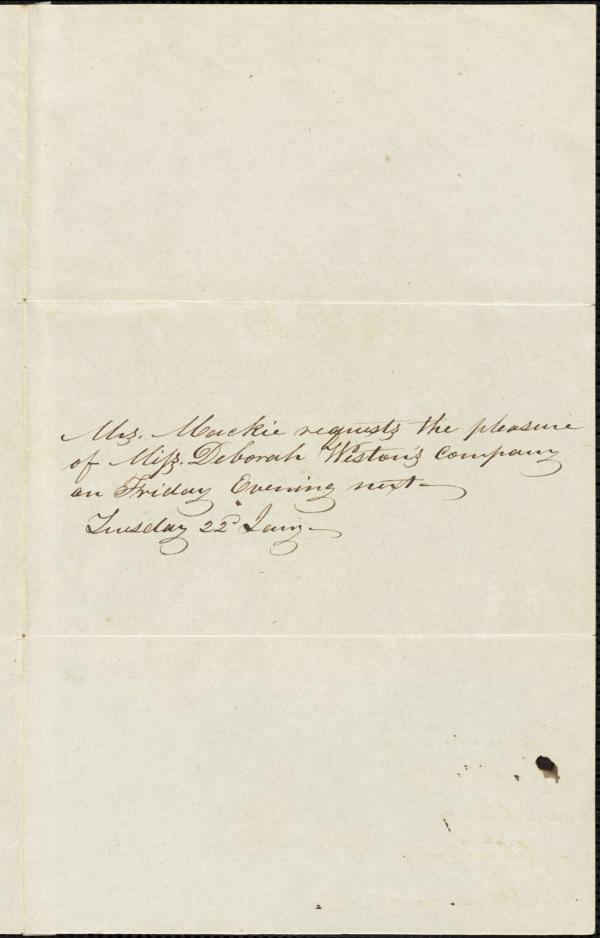 Mrs. Mackie requests the pleasure
of Miss. Deborah Weston's company
on Friday Evening next—
Tuesday 22d Jany—